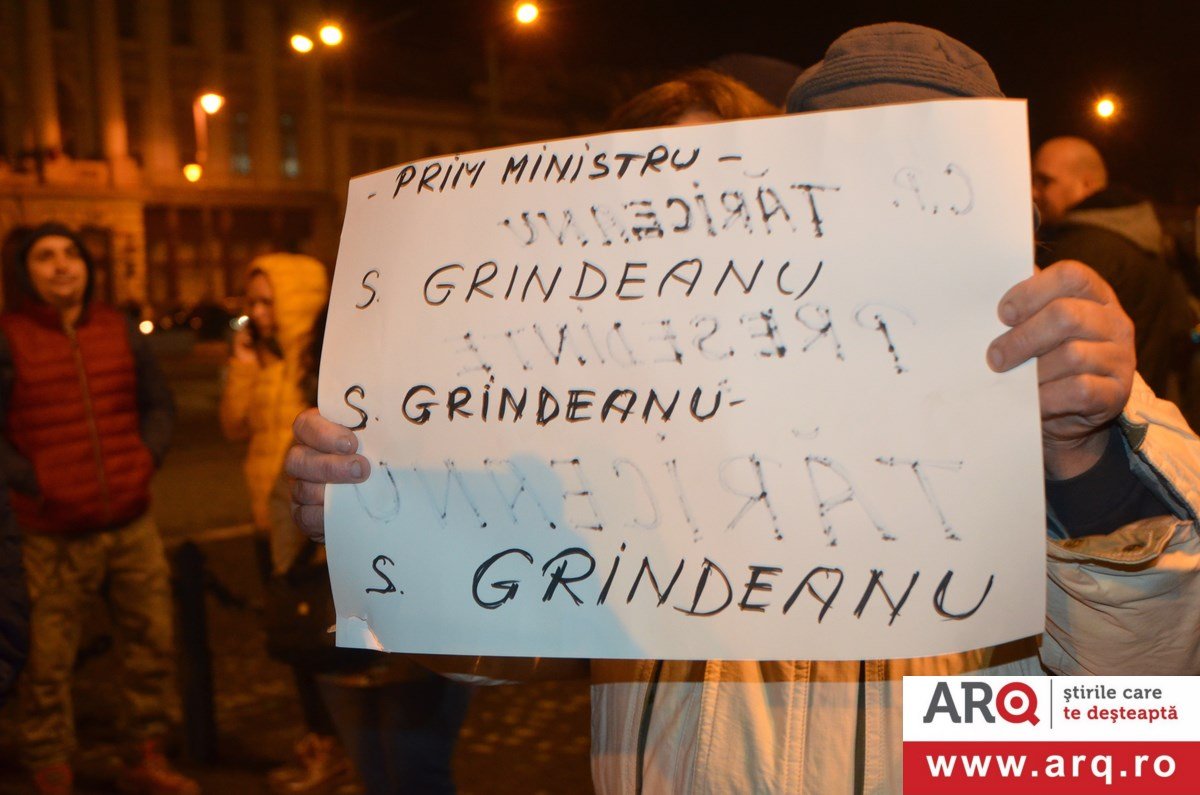 - PRIM MINISTRU -
C.P. TĂRICEANU
S. GRINDEANU
PRESEDINTE
S. GRINDEANU-
TĂRICEANU
S. GRINDEANU
ARQ
știrile care
te deșteaptă
www.arq.ro